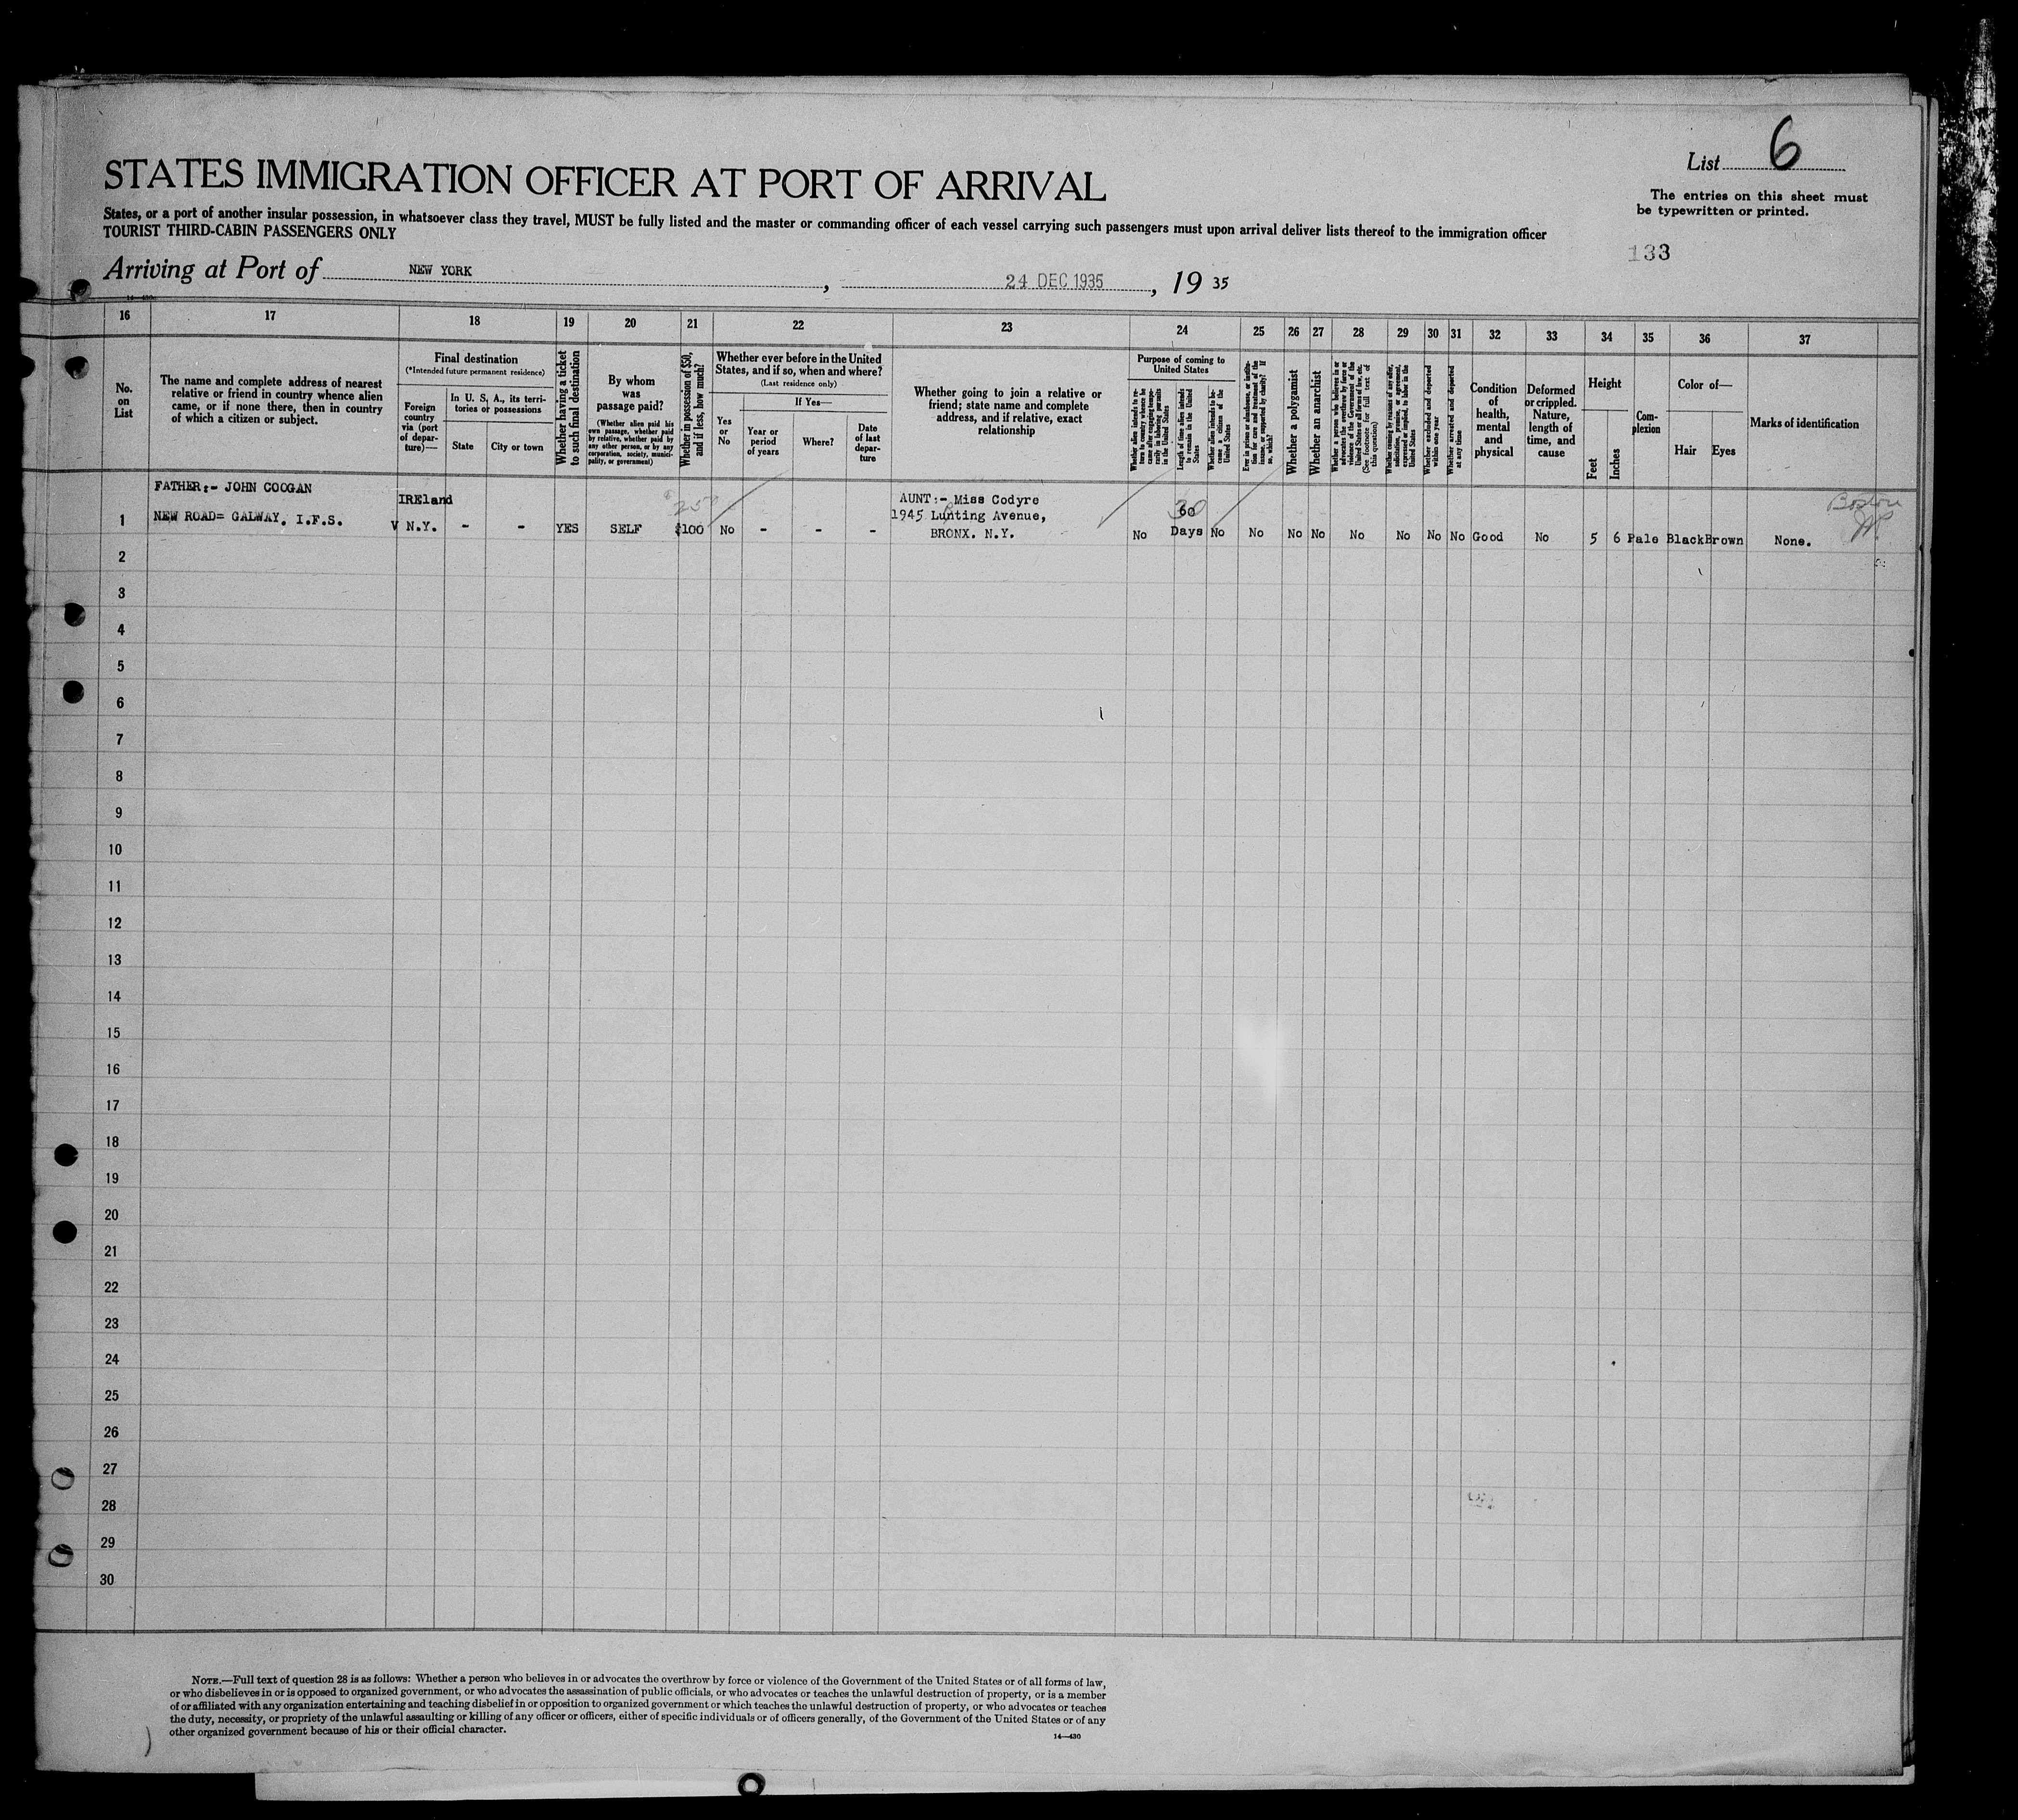 List 6
STATES IMMIGRATION OFFICER AT PORT OF ARRIVAL
The entries on this sheet must
be typewritten or printed.
States, or a port of another insular possession, in whatsoever class they travel, MUST be fully listed and the master or commanding officer of each vessel carrying such passengers must upon arrival deliver lists thereof to the immigration officer
TOURIST THIRD-CABIN PASSENGERS ONLY
133
Arriving at Port of NEW YORK, 24 DEC 1935, 19 35
14-430
16 17 18 19 20 21 22 23 24 25 26 27 28 29 30 31 32 33 34 35 36 37
No.
on
List
The name and complete address of nearest
relative or friend in country whence alien
came, or if none there, then in country
of which a citizen or subject.
Final destination
(*Intended future permanent residence)
Foreign
country
via (port
of depar-
ture)—
In U. S. A., its terri-
tories or possessions
State
City or town
Whether having a ticket
to such final destination
By whom
was
passage paid?
(Whether alien paid his
own passage, whether paid
by relative, whether paid by
any other person, or by any
corporation, society, munici-
pality, or government)
Whether in possession of $50,
and if less, how much?
Whether ever before in the United
States, and if so, when and where?
(Last residence only)
Yes
or
No
If Yes—
Year or
period
of years
Where?
Date
of last
depar-
ture
Whether going to join a relative or
friend; state name and complete
address, and if relative, exact
relationship
Purpose of coming to
United States
Whether alien intends to re-
turn to country whence he
came after engaging tempo-
rarily in laboring pursuits
in the United States
Length of time alien intends
to remain in the United
States
Whether alien intends to be-
come a citizen of the
United States
Ever in prison or almshouse, or institu-
tion for care and treatment of the
insane, or supported by charity? If
so, which?
Whether a polygamist
Whether an anarchist
Whether a person who believes in or
advocates the overthrow by force or
violence of the Government of the
United States or all forms of law, etc.
(See footnote for full text of
this question)
Whether coming by reasons of any offer,
solicitation, promise, or agreement,
expressed or implied, to labor in the
United States
Whether excluded and deported
within one year
Whether arrested and deported
at any time
Condition
of
health,
mental
and
physical
Deformed
or crippled.
Nature,
length of
time, and
cause
Height
Feet
Inches
Com-
plexion
Color of—
Hair
Eyes
Marks of identification
FATHER:- JOHN COOGAN
NEW ROAD= GALWAY. I.F.S.
IREland
V N.Y. - - YES SELF
250
$100 No - - -
AUNT:- Miss Codyre
1945 Lunting Avenue,
BRONX. N.Y.
No
60
30
Days No No No No No No No No Good No 5 6 Pale Black Brown None.
Boston
1
2
3
4
5
6
7
8
9
10
11
12
13
14
15
16
17
18
19
20
21
22
23
24
25
26
27
28
29
30
NOTE.—Full text of question 28 is as follows: Whether a person who believes in or advocates the overthrow by force or violence of the Government of the United States or of all forms of law,
or who disbelieves in or is opposed to organized government, or who advocates the assassination of public officials, or who advocates or teaches the unlawful destruction of property, or is a member
of or affiliated with any organization entertaining and teaching disbelief in or opposition to organized government or which teaches the unlawful destruction of property, or who advocates or teaches
the duty, necessity, or propriety of the unlawful assaulting or killing of any officer or officers, either of specific individuals or of officers generally, of the Government of the United States or of any
other organized government because of his or their official character.
14—430